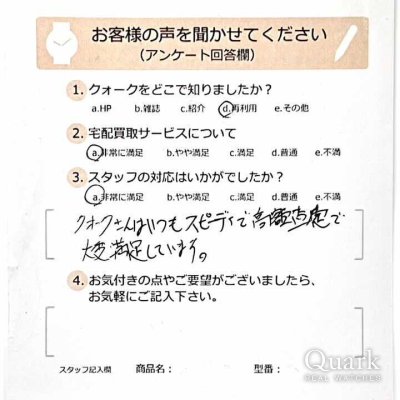 お客様の声を聞かせてください
(アンケート回答欄)
1. クォークをどこで知りましたか?
a.HP b.雑誌 c.紹介 d.再利用 e.その他
2. 宅配買取サービスについて
a.非常に満足 b.やや満足 c.満足 d.普通 e.不満
3. スタッフの対応はいかがでしたか?
a.非常に満足 b.やや満足 c.満足 d.普通 e.不満
クォークさんはいつもスピーディで高額査定で
大変満足しています。
4. お気付きの点やご要望がございましたら、
お気軽にご記入下さい。
スタッフ記入欄 商品名: 型番:
Quark
REAL WATCHES